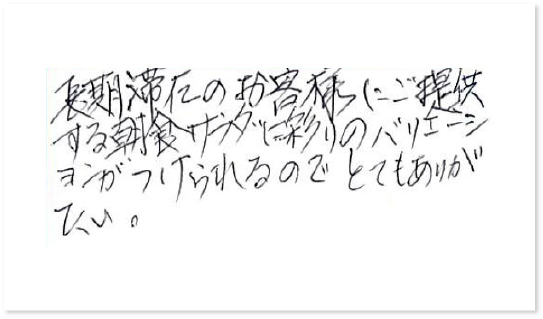 長期滞在のお客様にご提供
する朝食サラダに彩りのバリエーシ
ョンがつけられるのでとてもありが
たい。